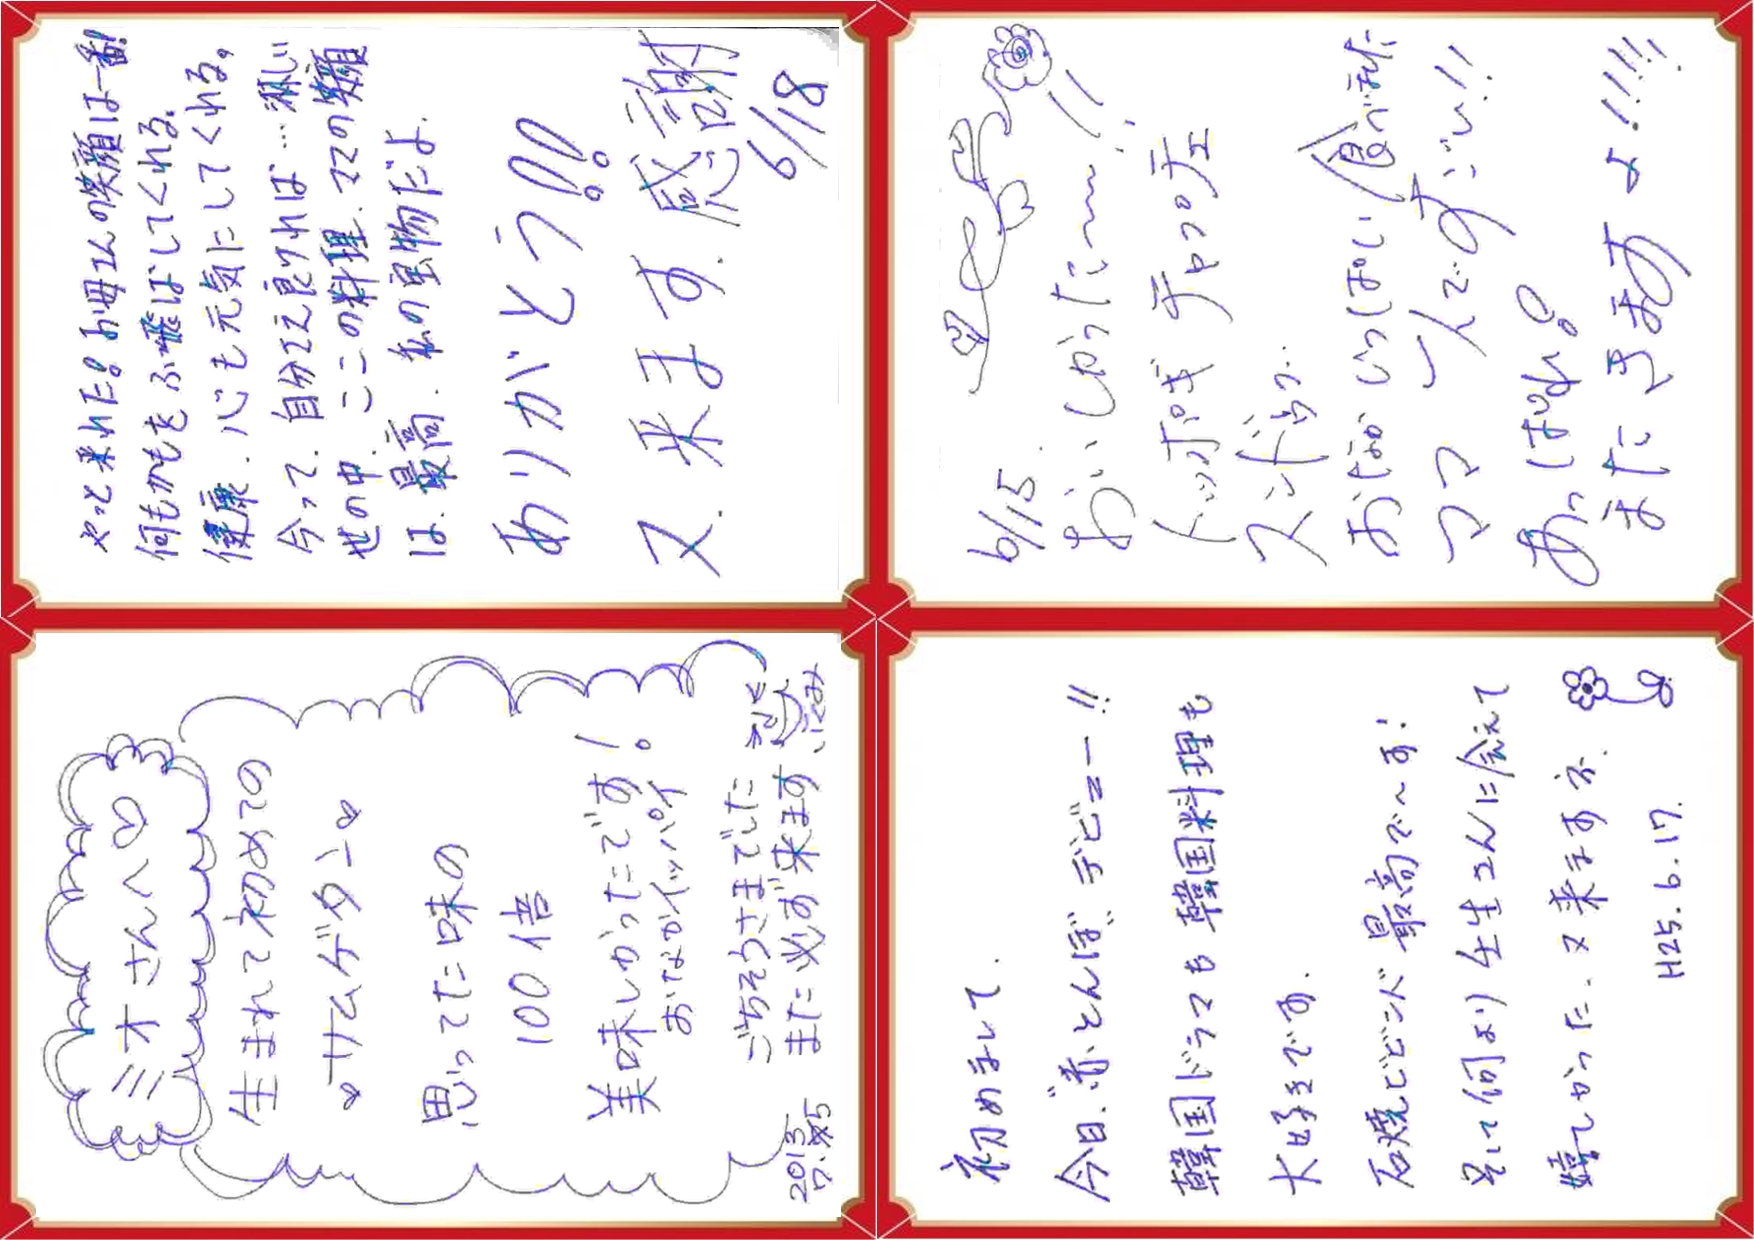 やっと来れた!お母さんの笑顔は一番!
何もかもをふっ飛ばしてくれる。
健康.心も元気にしてくれる。
今って.自分さえ良ければ…淋しい
世の中.ここの料理.ママの笑顔
は.最高.私の宝物だよ.
ありがとう!!!
又.来ます.感謝
6/18
6/15.
おいしかったにーー!!
トッポギ チャプチェ
スンドゥブ.
おなか いっぱい食べ
また きます よ!!!!!
ミオさんへ♡
生まれて初めての
サムゲタン
思ってた味の
100倍
美味しかったです!。
おなかイッパイ
ごちそうさまでした
また必ず来ます
2013
初めまして.
今日.赤とんぼデビュー!!
韓国ドラマも韓国料理も
大好きです.
石焼ビビンバ最高で〜す!
そして何より 生さんに会えて
嬉しかった.又来ますネ.
H25.6.17.